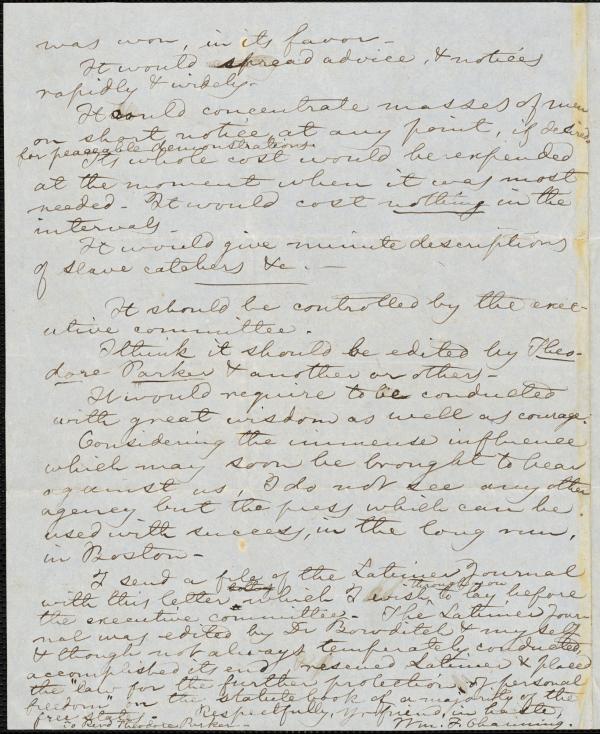 was won, in its favor -
It would spread advice, & notices
rapidly & widely -
It could concentrate masses of men
on short notice at any point, if desired
for peaceable demonstrations.
Its whole cost would be expended
at the moment when it was most
needed - It would cost nothing in the
intervals -
It would give minute descriptions
of slave catchers &c. -
It should be controlled by the exec-
utive committee.
I think it should be edited by Theo-
dore Parker & another or others -
It would require to be conducted
with great wisdom as well as courage.
Considering the immense influence
which may soon be brought to bear
against us, I do not see any other
agency but the press which can be
used with success, in the long run,
in Boston -
I send a file of the Latimer Journal
with this letter, which I wish through you to lay before
the executive committee - The Latimer Jour
nal was edited by Dr Bowditch & myself
& though not always temperately conducted,
accomplished its end, rescued Latimer & placed
the "law for the further protection of personal
freedom" on the statute book of a majority of the
free states - Respectfully, yr friend, in haste,
To Revd Theodore Parker - Wm. F. Channing.